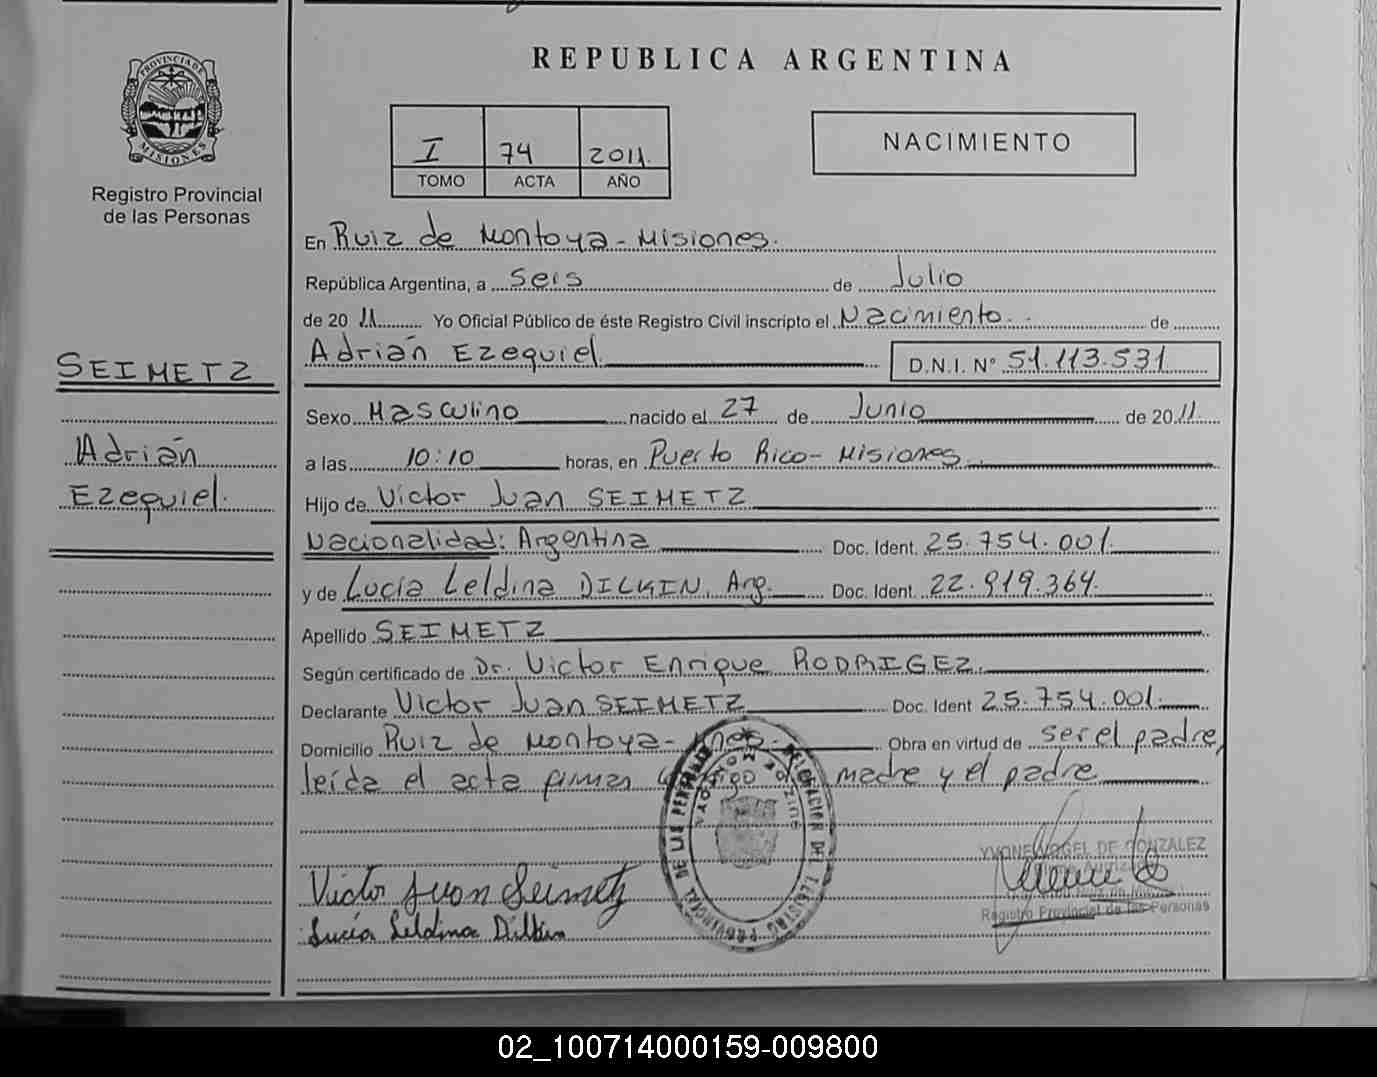 REPUBLICA ARGENTINA
PROVINCIA DE
MISIONES
Registro Provincial
de las Personas
I 74 2011.
TOMO ACTA AÑO
NACIMIENTO
En Ruiz de Montoya - Misiones.
República Argentina, a seis de Julio
de 20 11 Yo Oficial Público de éste Registro Civil inscripto el Nacimiento de
Adrián Ezequiel. D.N.I. Nº 51.113.531
SEIMETZ
Adrián
Ezequiel.
Sexo Masculino nacido el 27 de Junio de 2011
a las 10:10 horas, en Puerto Rico - Misiones.
Hijo de Victor Juan SEIMETZ
Nacionalidad: Argentina Doc. Ident. 25.754.001.
y de Lucía Leldina DILKIN, Arg. Doc. Ident. 22.919.364.
Apellido SEIMETZ
Según certificado de Dr. Victor Enrique RODRIGEZ.
Declarante Victor Juan SEIMETZ Doc. Ident 25.754.001.
Domicilio Ruiz de Montoya - Mnes. Obra en virtud de ser el padre,
leída el acta firman madre y el padre
Victor Juan Seimetz
Lucía Leldina Dilkin
DELEGACION DEL REGISTRO PROVINCIAL DE LAS PERSONAS
RUIZ DE MONTOYA
YVONE VOGEL DE GONZALEZ
Registro Provincial de las Personas
02_100714000159-009800